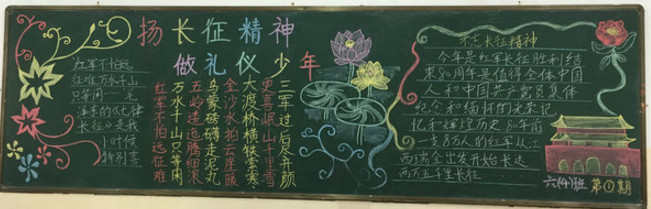 扬长征精神
做礼仪少年
红军不怕远
征难万水千山
只等闲
毛泽东的《七律
长征》是我
小时候
特别喜
红军不怕远征难
万水千山只等闲
五岭逶迤腾细浪
乌蒙磅礴走泥丸
金沙水拍云崖暖
大渡桥横铁索寒
更喜岷山千里雪
三军过后尽开颜
不忘长征精神
今年是红军长征胜利结
束80周年是值得全体中国
人和中国共产党员集体
纪念和缅怀的光荣记
忆和辉煌历史80年前
一支8万人的红军从江
西瑞金出发开始长达
两万五千里长征
六(4)班 第①期